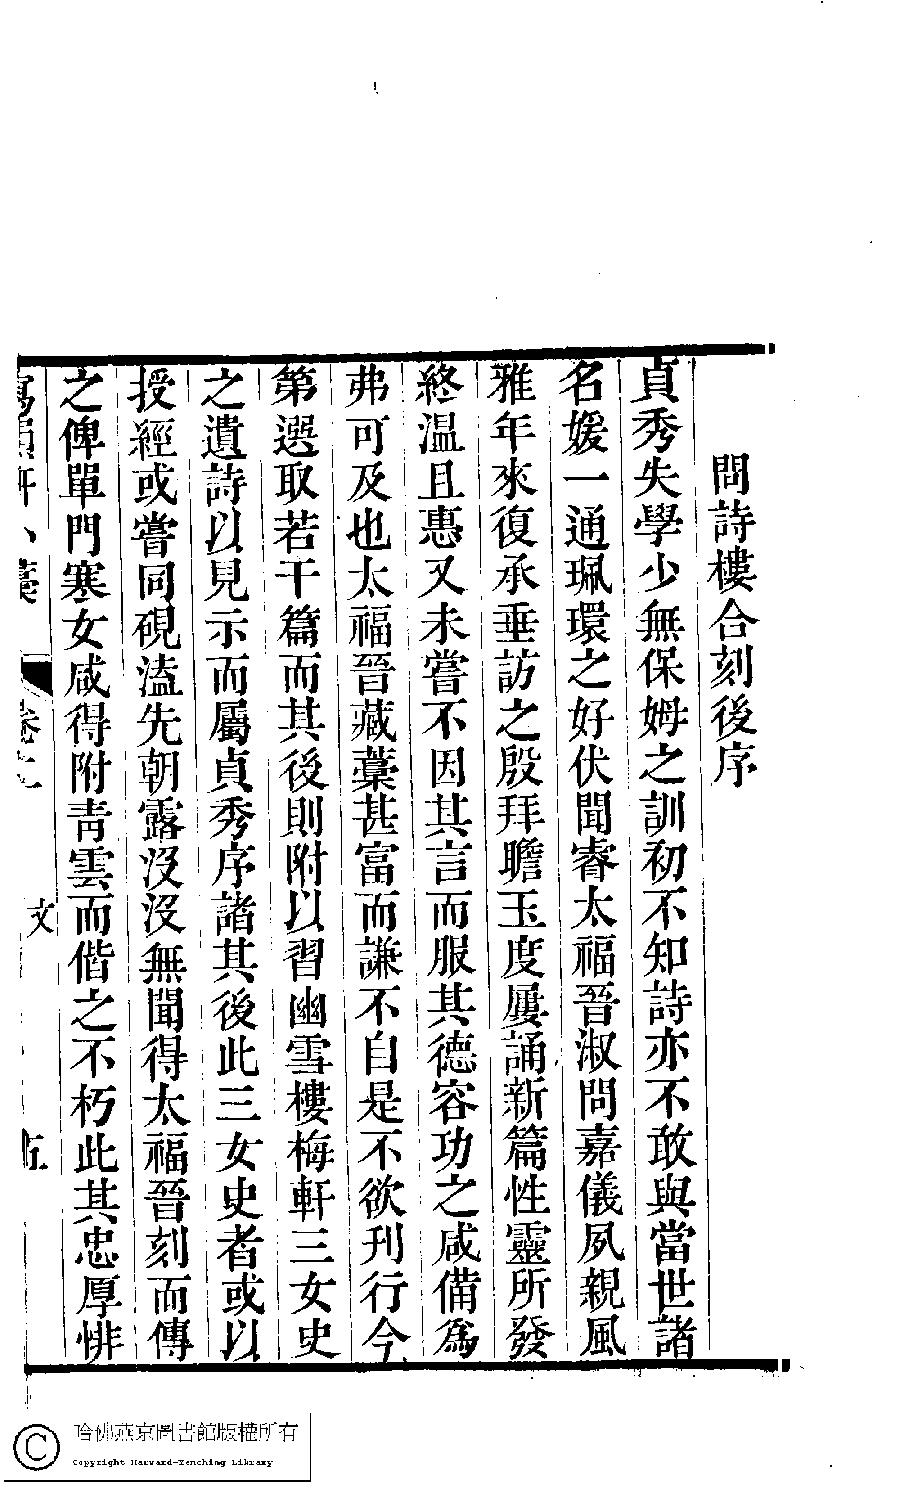 問詩樓合刻後序
貞秀失學少無保姆之訓初不知詩亦不敢與當世諸
名媛一通珮環之好伏聞睿太福晉淑問嘉儀夙親風
雅年來復承垂訪之殷拜瞻玉度屢誦新篇性靈所發
終温且惠又未嘗不因其言而服其德容功之咸備為
弗可及也太福晉藏藁甚富而謙不自是不欲刋行今
第選取若干篇而其後則附以習幽雪樓梅軒三女史
之遺詩以見示而屬貞秀序諸其後此三女史者或以
授經或嘗同硯溘先朝露沒沒無聞得太福晉刻而傳
之俾單門寒女咸得附青雲而偕之不朽此其忠厚悱
寫韻軒小藁 卷二 文
哈佛燕京圖書館版權所有
Copyright Harvard-Yenching Library